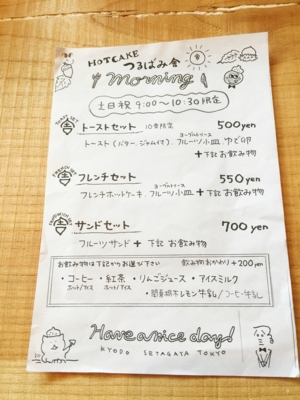 HOTCAKE
つるばみ舎
morning
土日祝 9:00〜10:30限定
トーストセット 10食限定 500yen
ヨーグルトソース
トースト(バター、ジャムイ寸)、フルーツ小皿 ゆで卵
+下記お飲み物
フレンチセット 550yen
ヨーグルトソース
フレンチホットケーキ、フルーツ小皿 +下記お飲み物
サンドセット 700yen
フルーツサンド + 下記お飲み物
お飲み物は下記からお選び下さい 飲み物おかわり+200yen
・コーヒー ・紅茶 ・りんごジュース ・アイスミルク
ホット/アイス ホット/アイス
・関東栃木レモン牛乳/コーヒー牛乳
Have a nice day!
KYODO SETAGAYA TOKYO